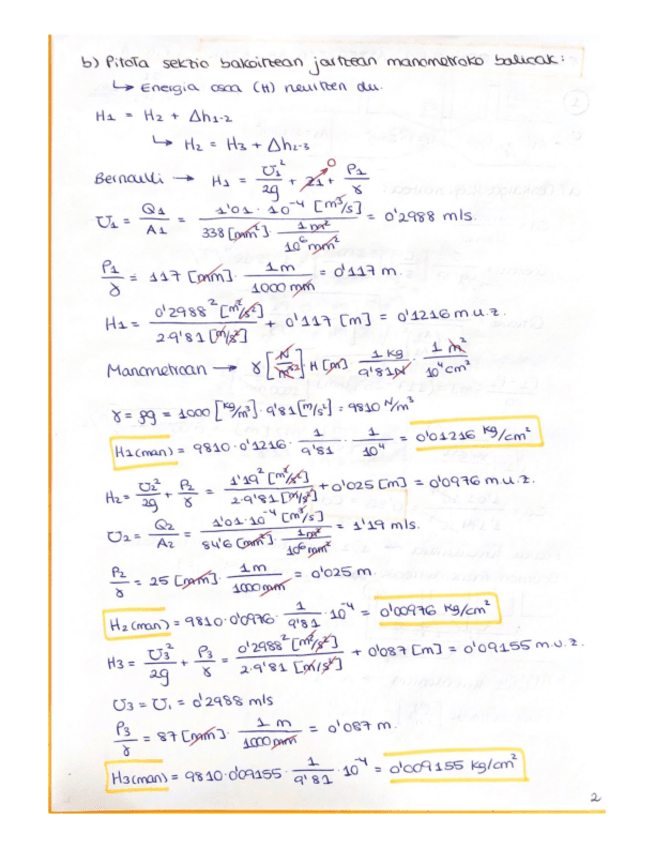 b) Pitota sektio bakoitzean jartzean manometroko balioak:
↳ Energia osoa (H) neurtzen du.
H1 = H2 + Δh1-2
↳ H2 = H3 + Δh2-3
Bernoulli → H1 = U1²/2g + z1 + P1/γ
0
U1 = Q1/A1 = 1'01 · 10⁻⁴ [m³/s] / 338 [mm²] · 1 m²/10⁶ mm² = 0'2988 m/s
P1/γ = 117 [mm] · 1 m/1000 mm = 0'117 m.
H1 = 0'2988² [m²/s²] / 2·9'81 [m/s²] + 0'117 [m] = 0'1216 m.u.z.
Manometroan → γ [N/m³] · H [m] · 1 kg/9'81 N · 1 m²/10⁴ cm²
γ = ρg = 1000 [kg/m³] · 9'81 [m/s²] = 9810 N/m³
H1(man) = 9810 · 0'1216 · 1/9'81 · 1/10⁴ = 0'01216 kg/cm²
H2 = U2²/2g + P2/γ = 1'19² [m²/s²] / 2·9'81 [m/s²] + 0'025 [m] = 0'0976 m.u.z.
U2 = Q2/A2 = 1'01·10⁻⁴ [m³/s] / 84'6 [mm²] · 1 m²/10⁶ mm² = 1'19 m/s.
P2/γ = 25 [mm] · 1 m/1000 mm = 0'025 m.
H2(man) = 9810 · 0'0976 · 1/9'81 · 10⁻⁴ = 0'00976 kg/cm²
H3 = U3²/2g + P3/γ = 0'2988² [m²/s²] / 2·9'81 [m/s²] + 0'087 [m] = 0'09155 m.u.z.
U3 = U1 = 0'2988 m/s
P3/γ = 87 [mm] · 1 m/1000 mm = 0'087 m.
H3(man) = 9810 · 0'09155 · 1/9'81 · 10⁻⁴ = 0'009155 kg/cm²
2